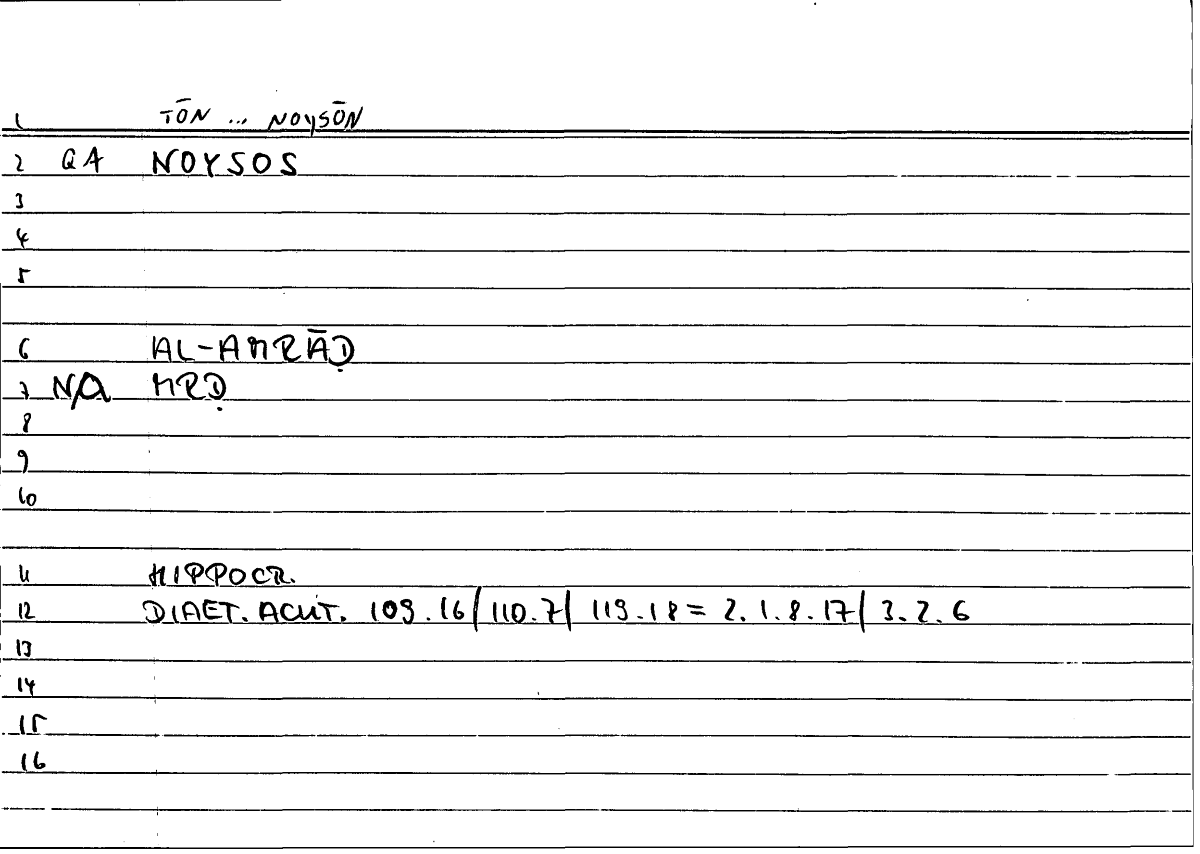 1 TŌN ... NOYSŌN
2 QA NOYSOS
3
4
5
6 AL-AMRĀḌ
7 NA MRḌ
8
9
10
11 HIPPOCR.
12 DIAET. ACUT. 109.16/110.7/ 119.18 = 2.1.8.17/ 3.2.6
13
14
15
16